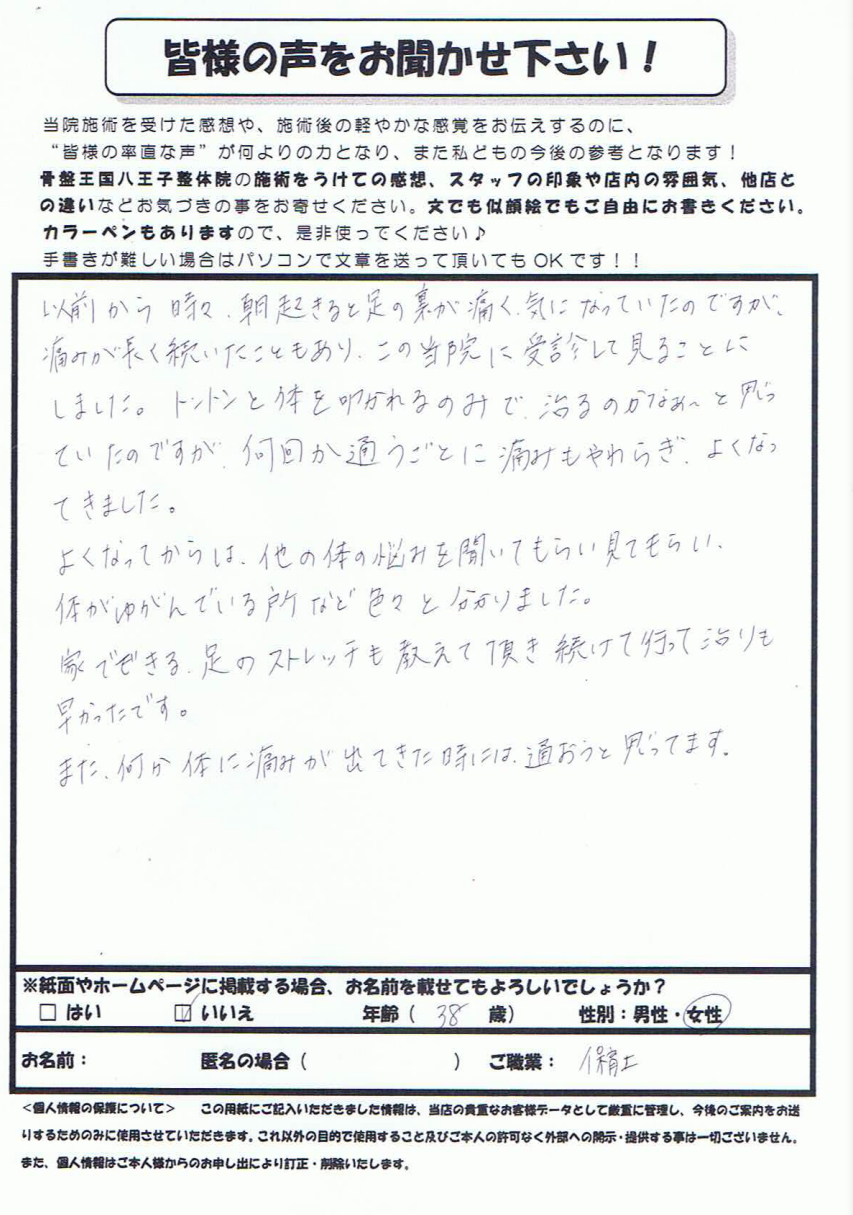 皆様の声をお聞かせ下さい!
当院施術を受けた感想や、施術後の軽やかな感覚をお伝えするのに、
“皆様の率直な声”が何よりの力となり、また私どもの今後の参考となります!
骨盤王国八王子整体院の施術をうけての感想、スタッフの印象や店内の雰囲気、他店と
の違いなどお気づきの事をお寄せください。文でも似顔絵でもご自由にお書きください。
カラーペンもありますので、是非使ってください♪
手書きが難しい場合はパソコンで文章を送って頂いてもOKです!!
以前から時々、朝起きると足の裏が痛く、気になっていたのですが、
痛みが長く続いたこともあり、この当院に受診して見ることに
しました。トントンと体を叩かれるのみで、治るのかなぁ〜と思っ
ていたのですが、何回か通うごとに痛みもやわらぎ、よくなっ
てきました。
よくなってからは、他の体の悩みを聞いてもらい見てもらい、
体がゆがんでいる所など色々と分かりました。
家でできる、足のストレッチも教えて頂き続けて行って治りも
早かったです。
また、何か体に痛みが出てきた時には、通おうと思ってます。
※紙面やホームページに掲載する場合、お名前を載せてもよろしいでしょうか?
□ はい ☑ いいえ 年齢( 38 歳) 性別:男性・女性
お名前: 匿名の場合( ) ご職業: 保育士
<個人情報の保護について> この用紙にご記入いただきました情報は、当店の貴重なお客様データとして厳重に管理し、今後のご案内をお送
りするためのみに使用させていただきます。これ以外の目的で使用すること及びご本人の許可なく外部への開示・提供する事は一切ございません。
また、個人情報はご本人様からのお申し出により訂正・削除いたします。